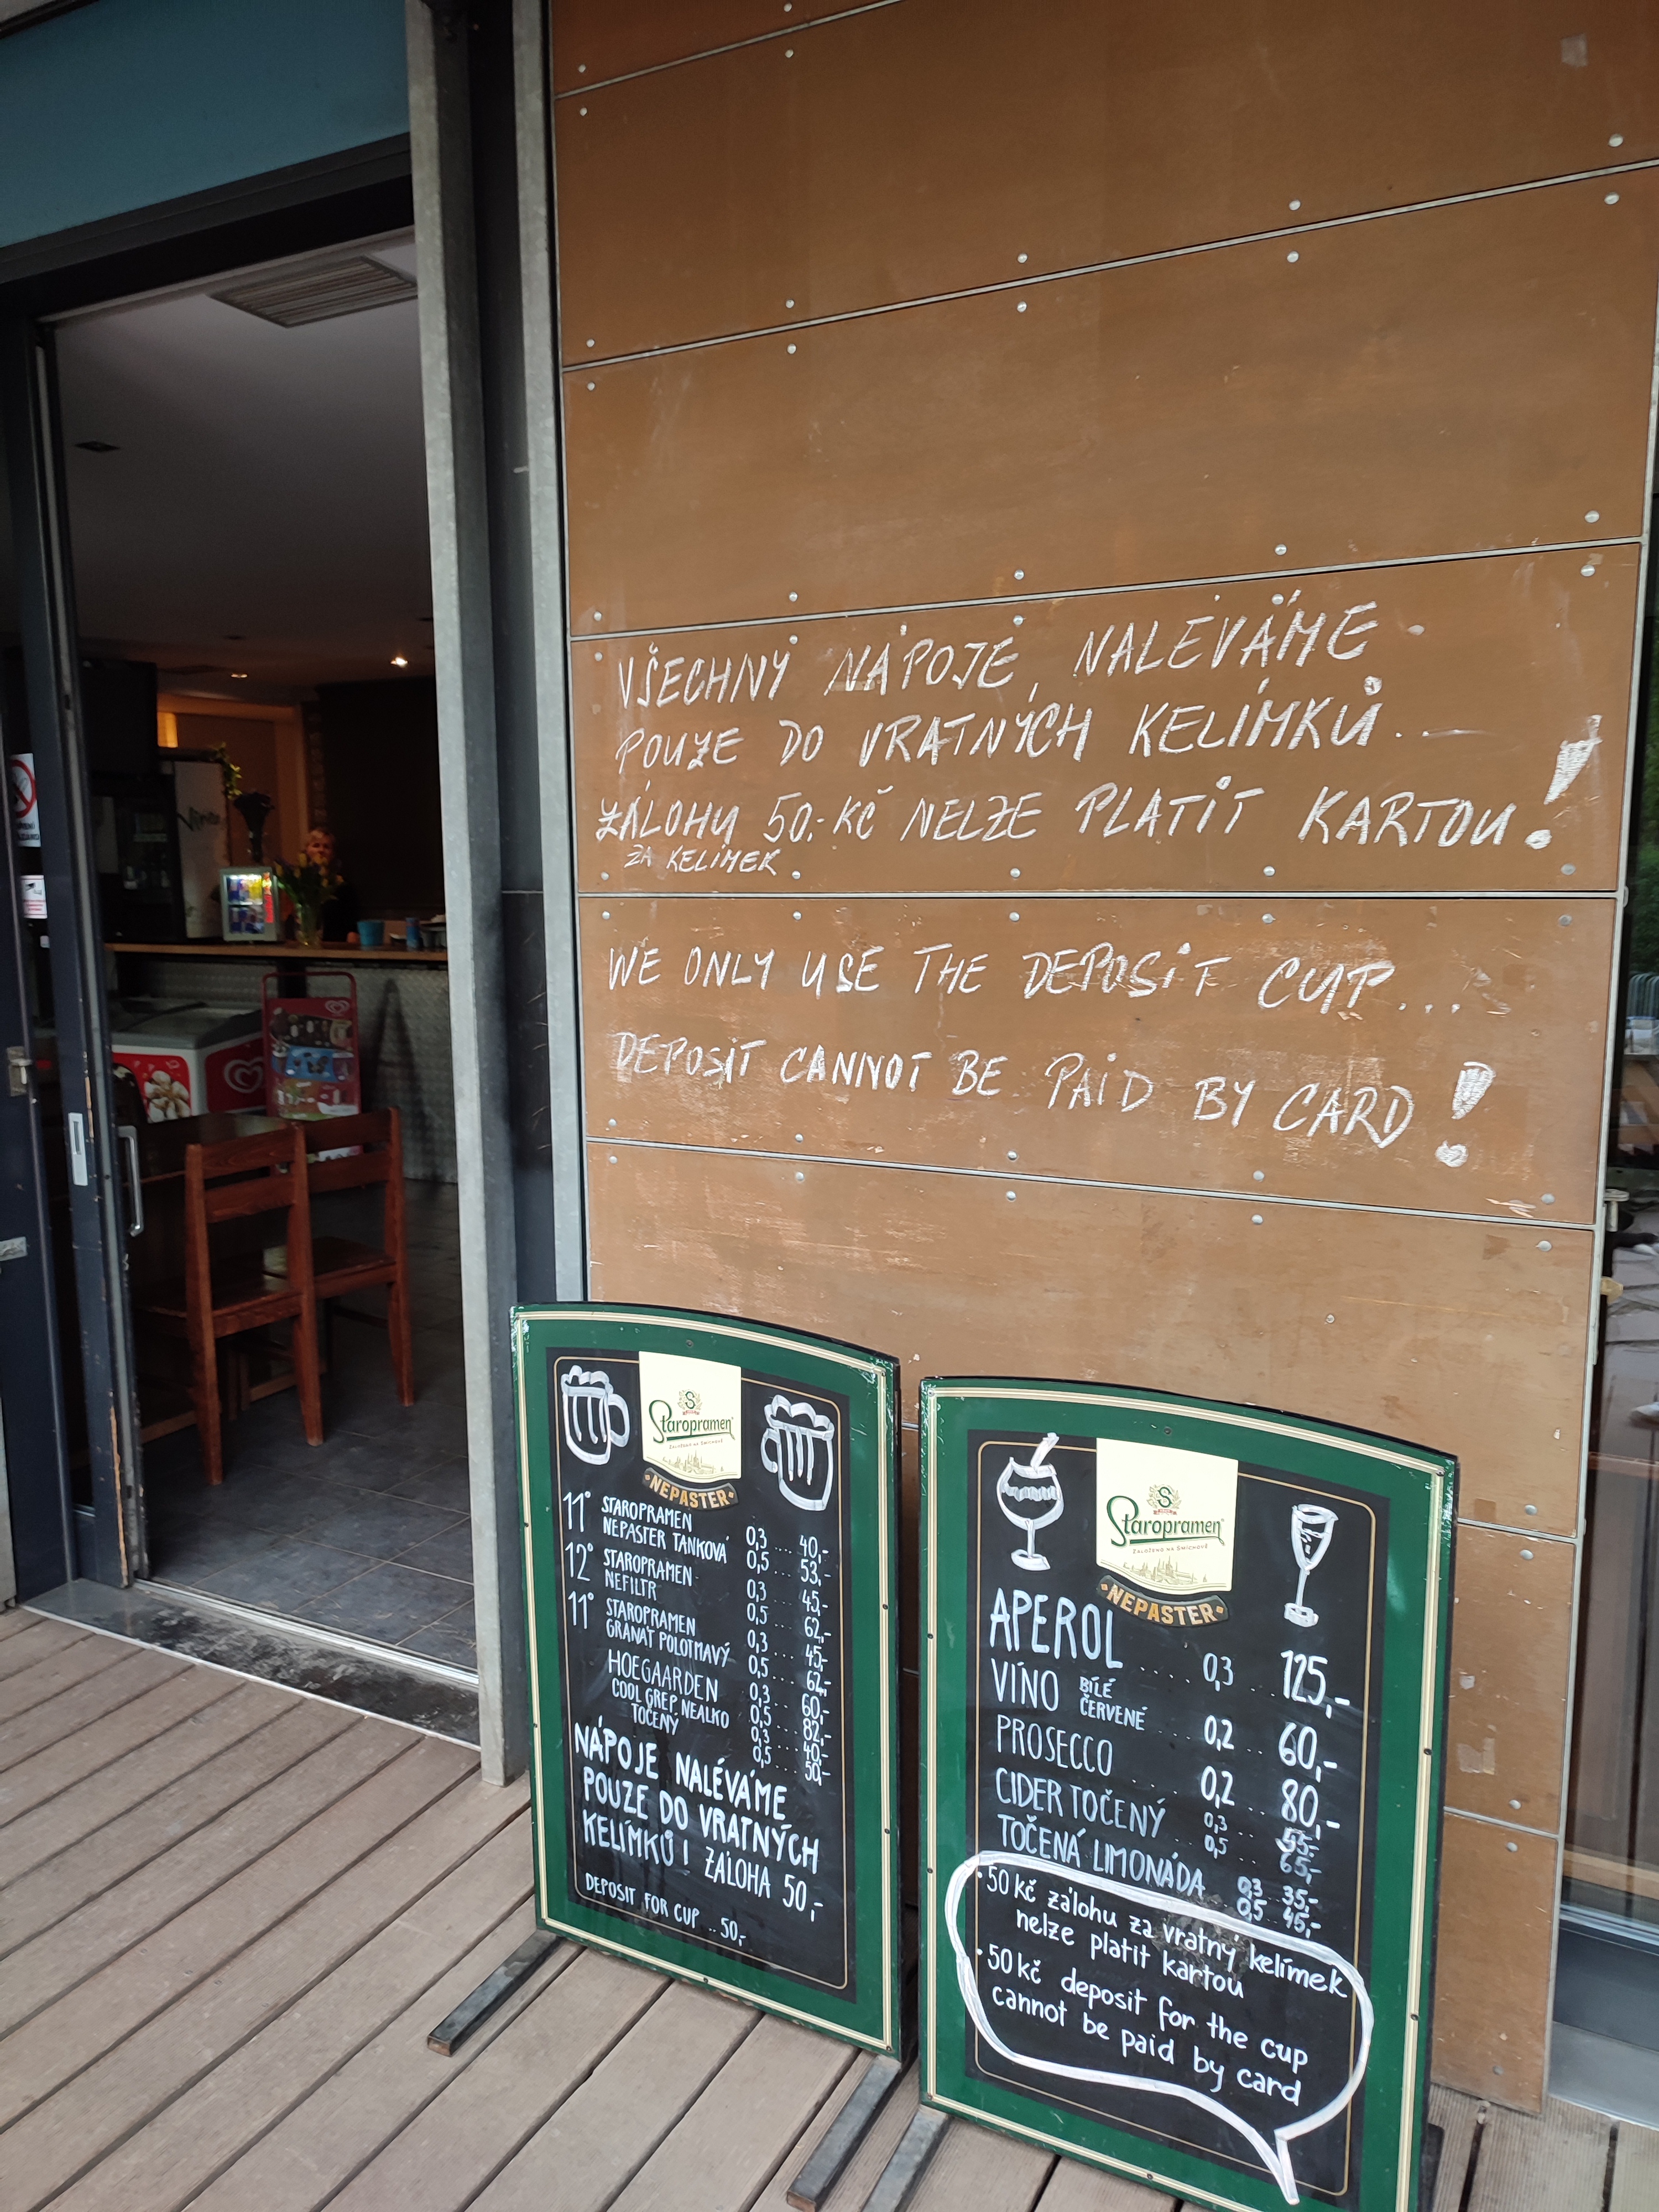 VŠECHNY NÁPOJE NALÉVÁME
POUZE DO VRATNÝCH KELÍMKŮ..
ZÁLOHU 50,- KČ NELZE PLATIT KARTOU!
ZA KELÍMEK
WE ONLY USE THE DEPOSIT CUP...
DEPOSIT CANNOT BE PAID BY CARD!
Staropramen
ZALOŽENO NA SMÍCHOVĚ
NEPASTER
11° STAROPRAMEN
NEPASTER TANKOVÁ 0,3 ... 40,-
0,5 ... 53,-
12° STAROPRAMEN
NEFILTR 0,3 ... 45,-
0,5 ... 62,-
11° STAROPRAMEN
GRANÁT POLOTMAVÝ 0,3 ... 45,-
0,5 ... 62,-
HOEGAARDEN 0,3 ... 60,-
0,5 ... 82,-
COOL GREP NEALKO
TOČENÝ 0,3 ... 40,-
0,5 ... 50,-
NÁPOJE NALÉVÁME
POUZE DO VRATNÝCH
KELÍMKŮ! ZÁLOHA 50,-
DEPOSIT FOR CUP .. 50,-
Staropramen
ZALOŽENO NA SMÍCHOVĚ
NEPASTER
APEROL .... 0,3 125,-
VÍNO BÍLÉ
ČERVENÉ ... 0,2 .. 60,-
PROSECCO .... 0,2 .. 80,-
CIDER TOČENÝ 0,3 ... 55,-
0,5 ... 65,-
TOČENÁ LIMONÁDA 0,3 35,-
0,5 45,-
• 50 kč zálohu za vratný kelímek
nelze platit kartou
• 50 kč deposit for the cup
cannot be paid by card